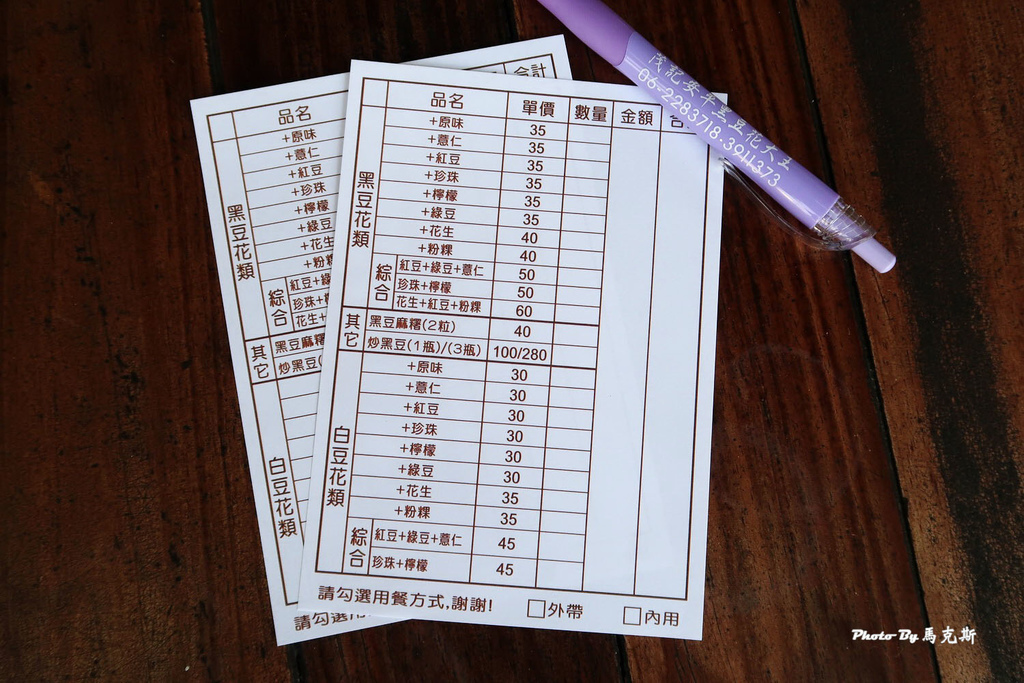 品名 單價 數量 金額
黑豆花類
+原味 35
+薏仁 35
+紅豆 35
+珍珠 35
+檸檬 35
+綠豆 35
+花生 40
+粉粿 40
綜合
紅豆+綠豆+薏仁 50
珍珠+檸檬 50
花生+紅豆+粉粿 60
其它
黑豆麻糬(2粒) 40
炒黑豆(1瓶)/(3瓶) 100/280
白豆花類
+原味 30
+薏仁 30
+紅豆 30
+珍珠 30
+檸檬 30
+綠豆 30
+花生 35
+粉粿 35
綜合
紅豆+綠豆+薏仁 45
珍珠+檸檬 45
請勾選用餐方式,謝謝! □外帶 □內用
合計
品名
黑豆花類
+原味
+薏仁
+紅豆
+珍珠
+檸檬
+綠豆
+花生
+粉粿
綜合
紅豆+綠
珍珠+檸
花生+
其它
黑豆麻糬
炒黑豆(
白豆花類
請勾選用
茂記安平黑豆花大王
06-2283718.3911373
Photo By 馬克斯